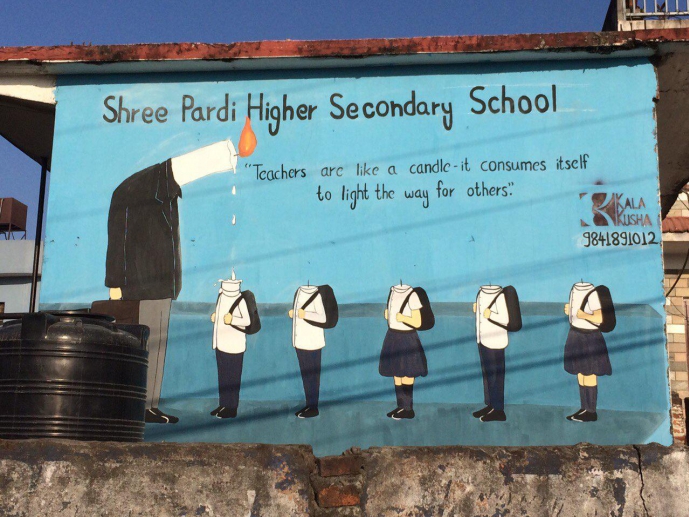 Shree Pardi Higher Secondary School
"Teachers are like a candle-it consumes itself
to light the way for others".
KALA
KUSHA
9841891012